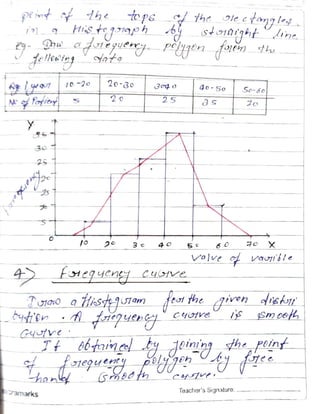 point of the tops of the rectangles
in a Histogram by straight line
eg- Draw a frequency polygon from the
following data
Age (year) 10-20 20-30 30-40 40-50 50-60
No of Patient 5 20 25 35 20
Y
35
30
25
20
15
10
5
0 10 20 30 40 50 60 70 X
frequency
value of varible
4) frequency curve
Draw a Histogram for the given distri
bution. A frequency curve is smooth
curve.
It obtained by joining the point
of frequency polygon by free
hand smooth curve.
Teacher's Signature